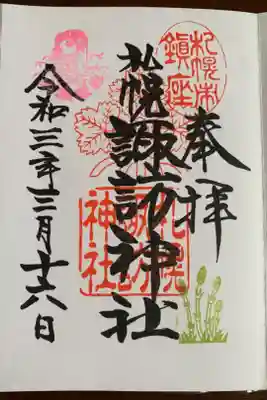 札幌市
鎮座
奉拝
札幌諏訪神社
札幌
諏訪
神社
令和三年三月十六日